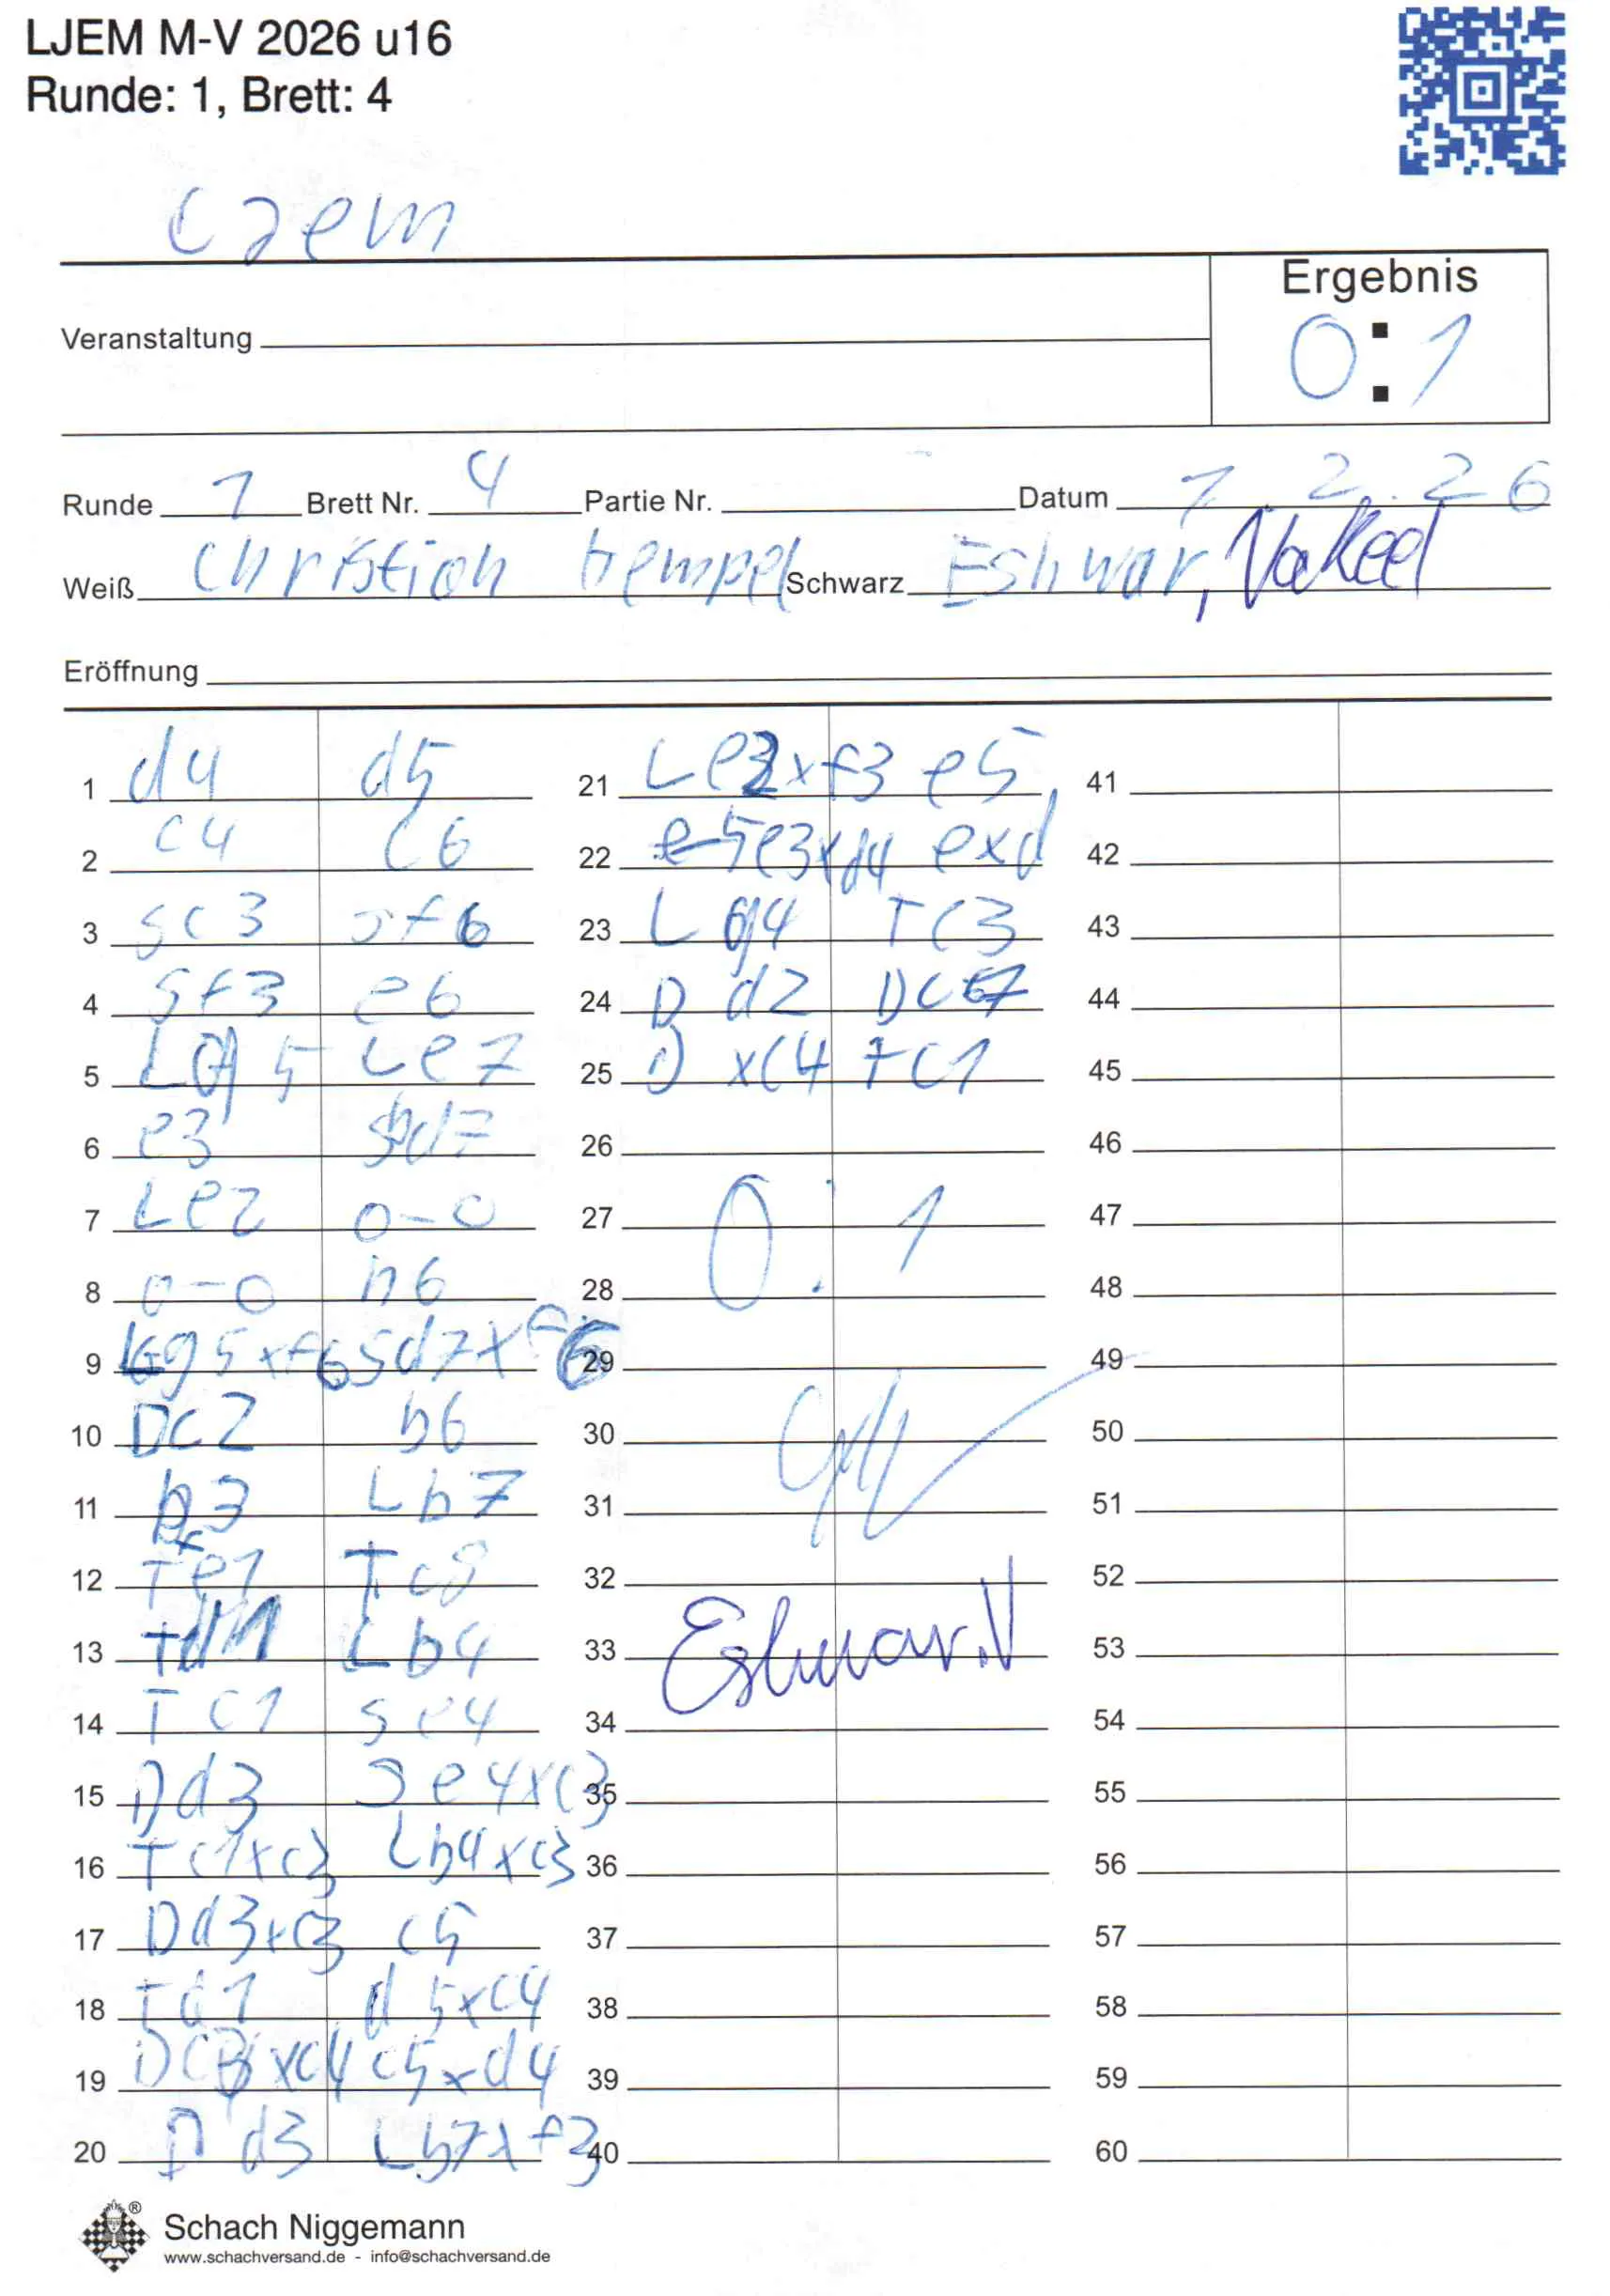 LJEM M-V 2026 u16
Runde: 1, Brett: 4
Ljem
Ergebnis
Veranstaltung
0:1
Runde 1 Brett Nr. 4 Partie Nr. Datum 7.2.26
Weiß Christian Hempel Schwarz Eshwar, Vakeel
Eröffnung
1 d4 d5
2 c4 c6
3 Sc3 Sf6
4 Sf3 e6
5 Lg5 Le7
6 e3 Sbd7
7 Le2 0-0
8 0-0 h6
9 Lg5xf6 Sd7xf6
10 Dc2 b6
11 b3 Lb7
12 Te1 Tc8
13 Td1 Lb4
14 Tc1 Se4
15 Dd3 Se4xc3
16 Tc1xc3 Lb4xc3
17 Dd3xc3 c5
18 Td1 d5xc4
19 Dc3xc4 c5xd4
20 Dd3 Lb7xf3
21 Le2xf3 e5
22 e3xd4 exd
23 Lg4 Tc3
24 Dd2 Dc7
25 Dxc4 Tc1
26
27 0:1
28
29
30
31
32
33 Eshwar.V
34
35
36
37
38
39
40
41
42
43
44
45
46
47
48
49
50
51
52
53
54
55
56
57
58
59
60
Schach Niggemann
www.schachversand.de - info@schachversand.de